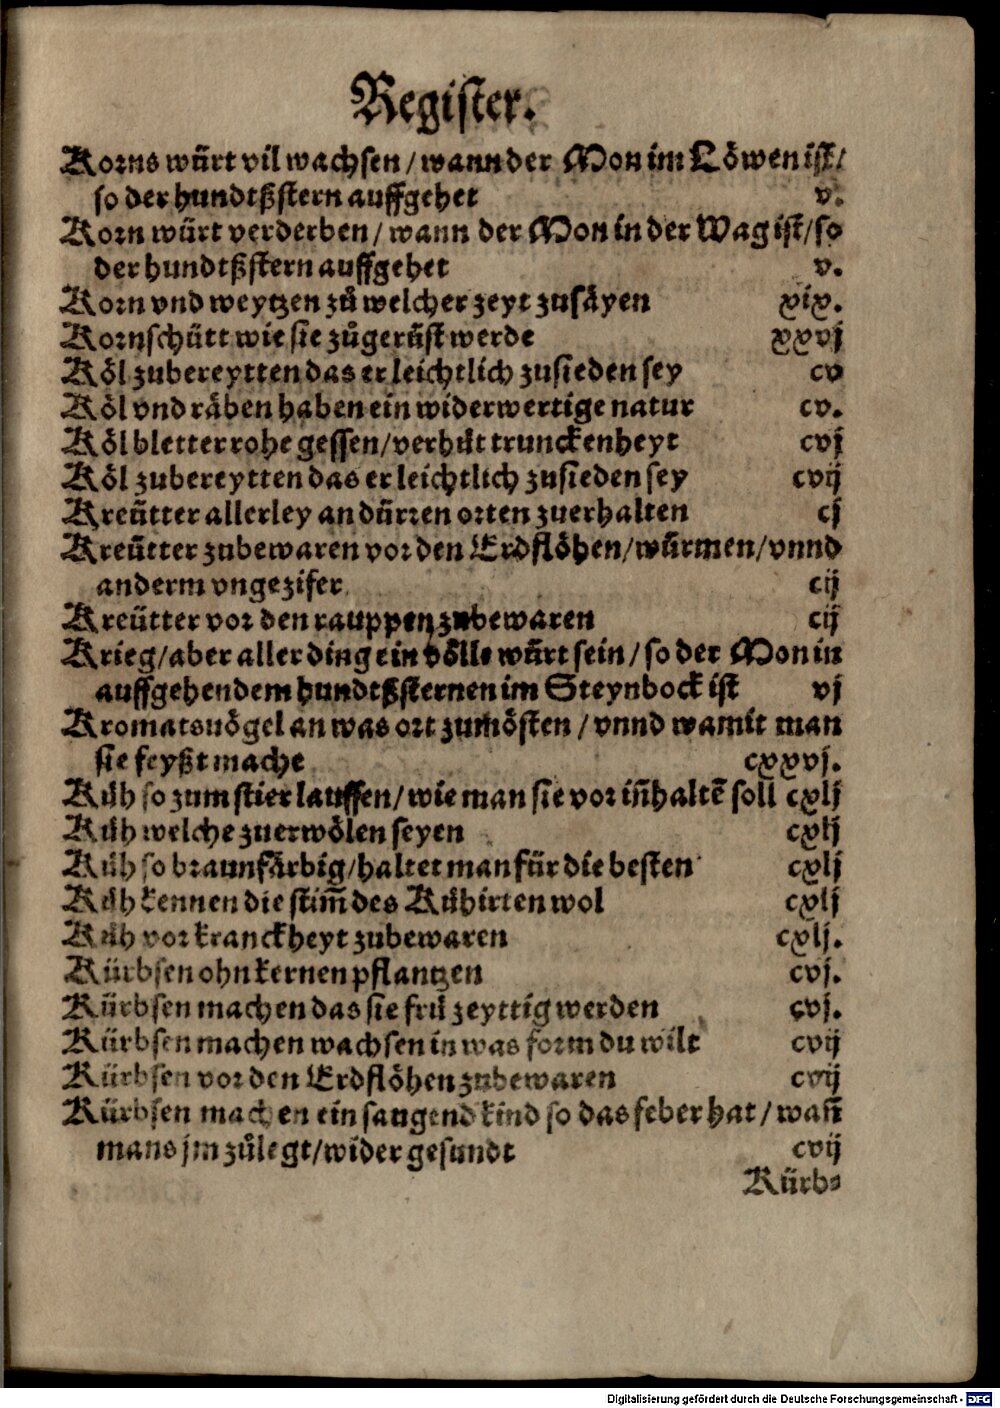 Register.
Korns würt vil wachsen / wann der Mon im Löwen ist /
so der hundtßstern auffgehet v.
Korn würt verderben / wann der Mon in der Wag ist / so
der hundtßstern auffgehet v.
Korn vnd weytzen zů welcher zeyt zusäyen xix.
Kornschütt wie sie zůgerüst werde xxvj
Köl zubereytten das er leichtlich zusieden sey cv
Köl vnd räben haben ein widerwertige natur cv.
Köl bletter rohe gessen / verhüt trunckenheyt cvj
Köl zubereytten das er leichtlich zusieden sey cvij
Kreütter allerley an dürren orten zuerhalten cj
Kreütter zubewaren vor den Erdflöhen / würmen / vnnd
anderm vngezifer cij
Kreütter vor den rauppen zubewaren cij
Krieg / aber aller ding ein völle würt sein / so der Mon in
auffgehendem hundtßsternen im Steynbock ist vj
Kromatsuögel an was ort zumösten / vnnd wamit man
sie feyßt mache cxxvj.
Küh so zum stier lauffen / wie man sie vor iñ haltẽ soll cxlj
Küh welche zuerwölen seyen cxlj
Küh so braunfärbig / haltet man für die besten cxlj
Küh kennen die stim̃ des Kühirten wol cxlj
Küh vor kranckheyt zubewaren cxlj.
Kürbsen ohn kernen pflantzen cvj.
Kürbsen machen das sie frü zeyttig werden cvj.
Kürbsen machen wachsen in was form du wilt cvij
Kürbsen vor den Erdflöhen zubewaren cvij
Kürbsen machen ein saugend kind so das feber hat / wañ
mans jm zůlegt / wider gesundt cvij
Kürb⸗
Digitalisierung gefördert durch die Deutsche Forschungsgemeinschaft - DFG